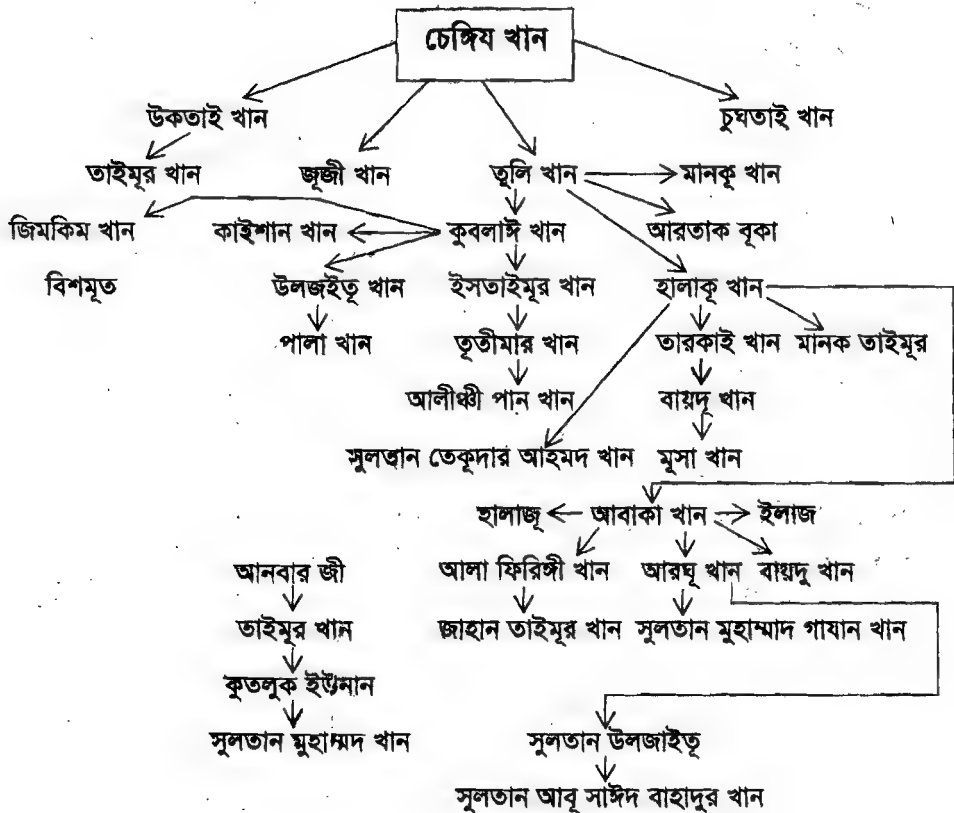 চেঙ্গিয খান
উকতাই খান চুঘতাই খান
তাইমূর খান জূজী খান তুলি খান মানকূ খান
জিমকিম খান কাইশান খান কুবলাঈ খান আরতাক বূকা
বিশমূত উলজইতূ খান ইসতাইমূর খান হালাকূ খান
পালা খান তূতীমার খান তারকাই খান মানক তাইমূর
আলীঞ্চী পান খান বায়দূ খান
সুলতান তেকূদার আহমদ খান মূসা খান
হালাজূ আবাকা খান ইলাজ
আনবার জী আলা ফিরিঙ্গী খান আরঘূ খান বায়দু খান
তাইমূর খান জাহান তাইমূর খান সুলতান মুহাম্মাদ গাযান খান
কুতলুক ইউনান
সুলতান মুহাম্মদ খান সুলতান উলজাইতূ
সুলতান আবূ সাঈদ বাহাদুর খান